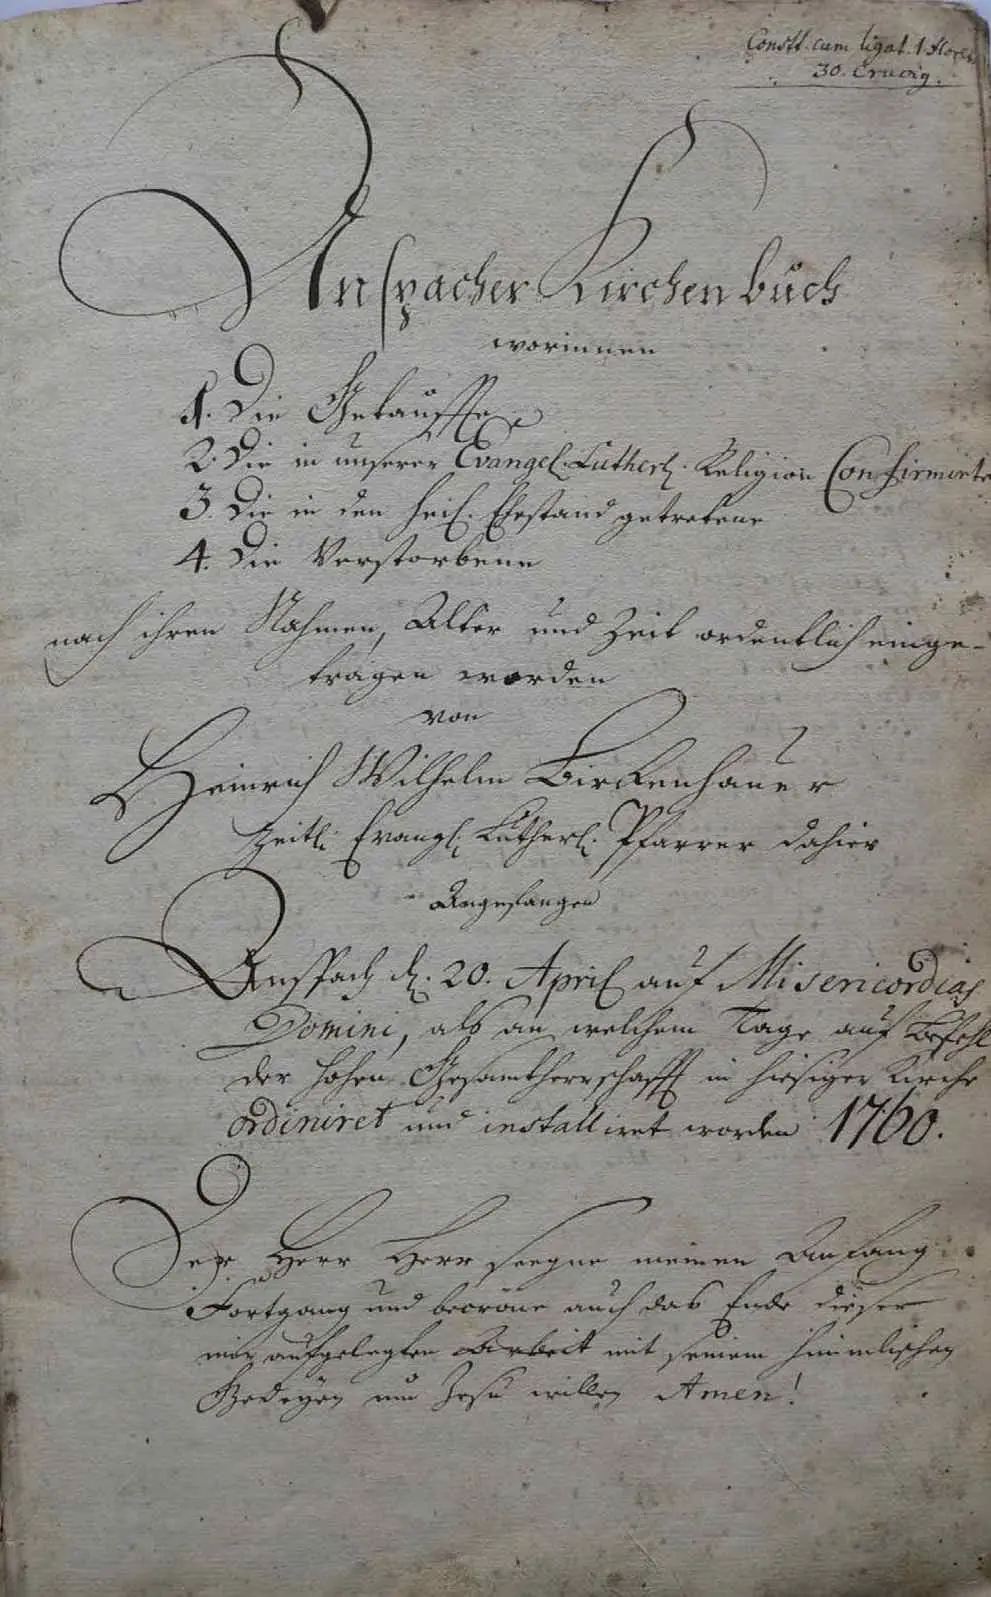 Constt. cum ligat. 1. flor.
30. Crucig.
Anspacher Kirchenbuch
worinnen
1. Die Getauffte
2. Die in unserer Evangel. Lutherl. Religion Confirmirte
3. Die in den heil. Ehestand getretene
4. Die Verstorbene
nach ihren Nahmen, Alter und Zeit ordentlich einge-
tragen worden
von
Heinrich Wilhelm Birckenhauer
Zeitl. Evangl. Lutherl. Pfarrer dahier
Angefangen
Anspach d. 20. April auf Misericordias
Domini, als an welchem Tage auf Befehl
der hohen Gesamtherrschafft in hiesiger Kirche
ordiniret und installiret worden 1760.
Der Herr Herr seegne meinen Anfang
Fortgang und beoröne auch das Ende dieser
mir aufgelegten Arbeit mit seinem himmlischen
Gedeyen um Jesu willen Amen!